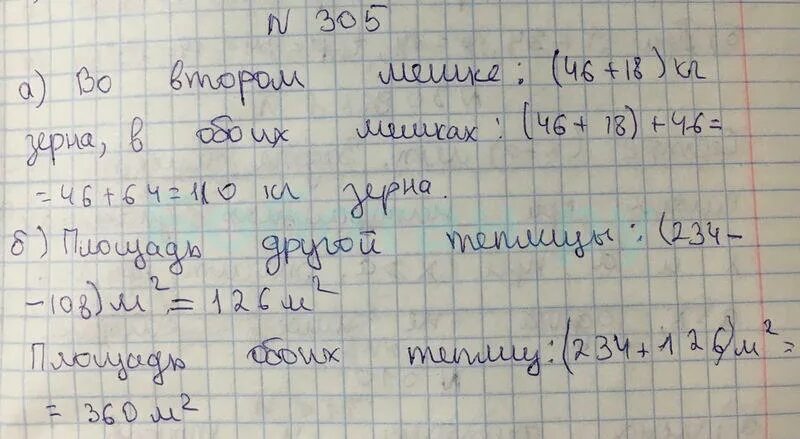 N 305
а) Во втором мешке: (46+18) кг
зерна, в обоих мешках: (46+18)+46=
=46+64=110 кг зерна.
б) Площадь другой теплицы: (234-
-108) м²=126 м²
Площадь обоих теплиц: (234+126) м²=
=360 м²